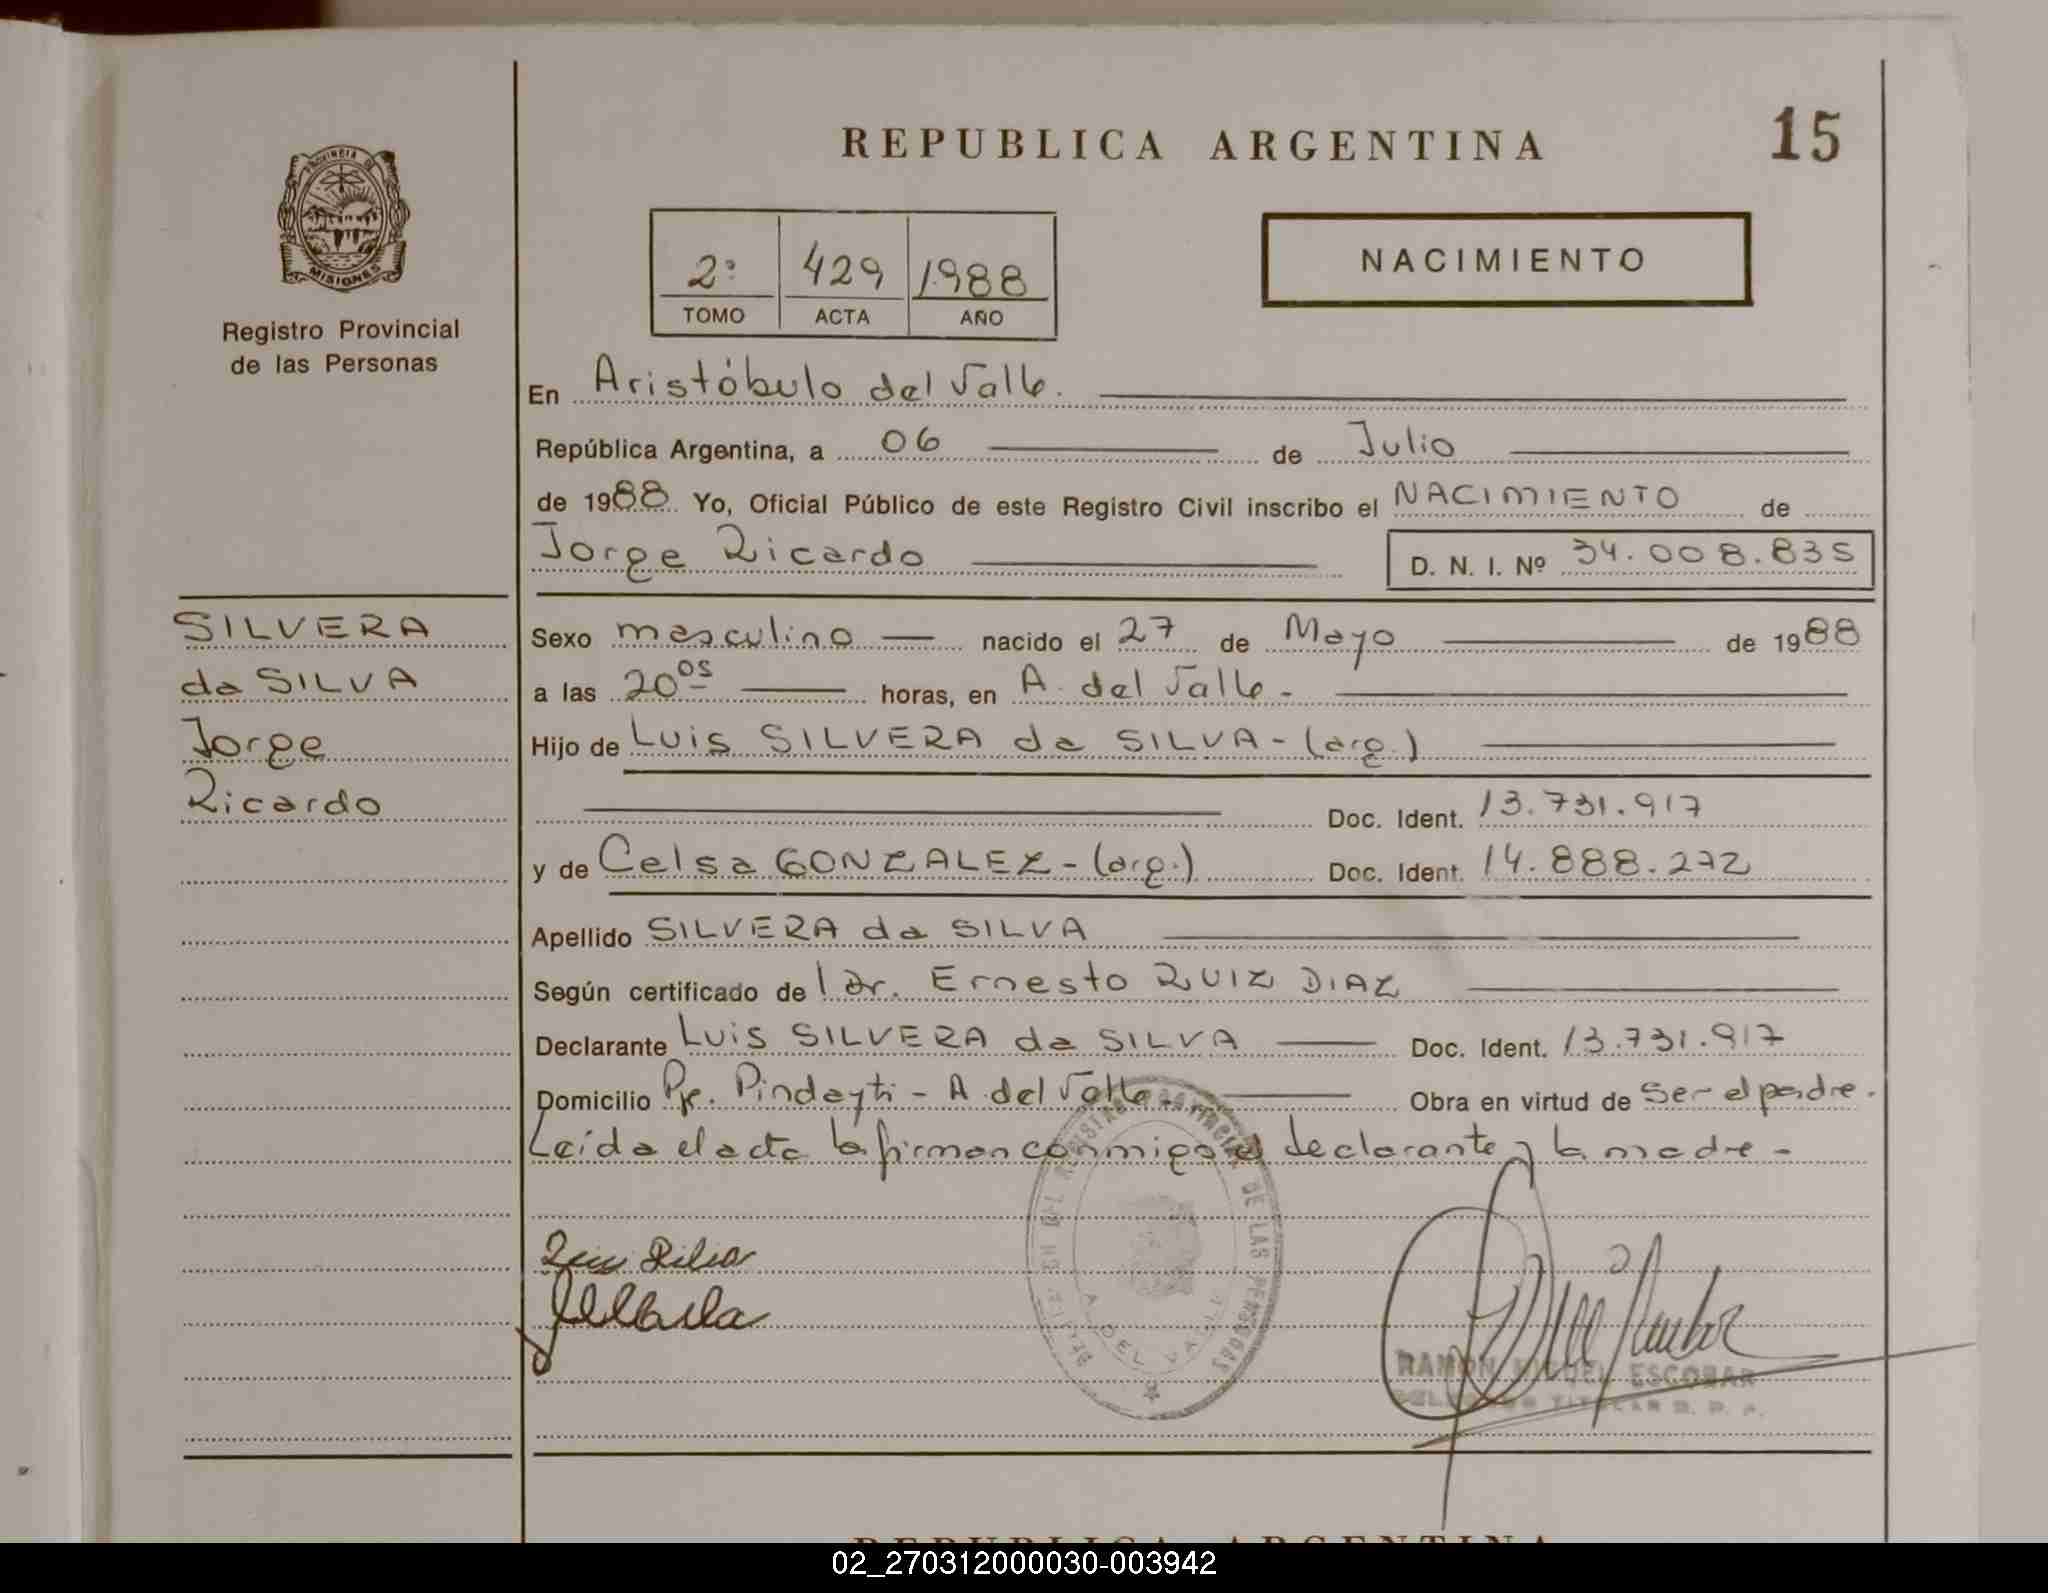 REPUBLICA ARGENTINA
15
PROVINCIA DE
MISIONES
Registro Provincial
de las Personas
2º 429 1988
TOMO ACTA AÑO
NACIMIENTO
En Aristóbulo del Valle.
República Argentina, a 06 de Julio
de 1988 Yo, Oficial Público de este Registro Civil inscribo el NACIMIENTO de
Jorge Ricardo D. N. I. Nº 34.008.835
SILVERA
da SILVA
Jorge
Ricardo
Sexo masculino nacido el 27 de Mayo de 1988
a las 20 05 horas, en A. del Valle.-
Hijo de Luis SILVERA da SILVA-(arg.)
Doc. Ident. 13.731.917
y de Celsa GONZALEZ-(arg.) Doc. Ident. 14.888.272
Apellido SILVERA da SILVA
Según certificado de l Dr. Ernesto RUIZ DIAZ
Declarante Luis SILVERA da SILVA Doc. Ident. 13.731.917
Domicilio Pje. Pindayti - A. del Valle.- Obra en virtud de ser el padre.
Leída el acta la firman conmigo el declarante y la madre-
DEL REGISTRO PROVINCIAL DE LAS PERSONAS
A. DEL VALLE
RAMON MIGUEL ESCOBAR
TITULAR R. P. P.
REPUBLICA ARGENTINA
02_270312000030-003942